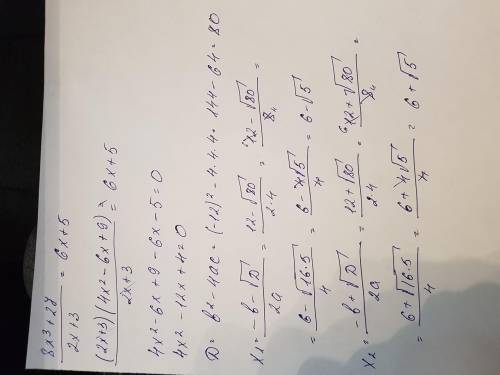 8x³+27 / 2x+3 = 6x+5
(2x+3)(4x²-6x+9) / 2x+3 = 6x+5
4x²-6x+9-6x-5=0
4x²-12x+4=0
D = b²-4ac = (-12)²-4·4·4 = 144-64=80
x₁ = -b-√D / 2a = 12-√80 / 2·4 = 12-√80 / 8 4 =
= 6-√16·5 / 4 = 6-4√5 / 4 = 6-√5
x₂ = -b+√D / 2a = 12+√80 / 2·4 = 6 12+√80 / 8 4 =
= 6+√16·5 / 4 = 6+4√5 / 4 = 6+√5